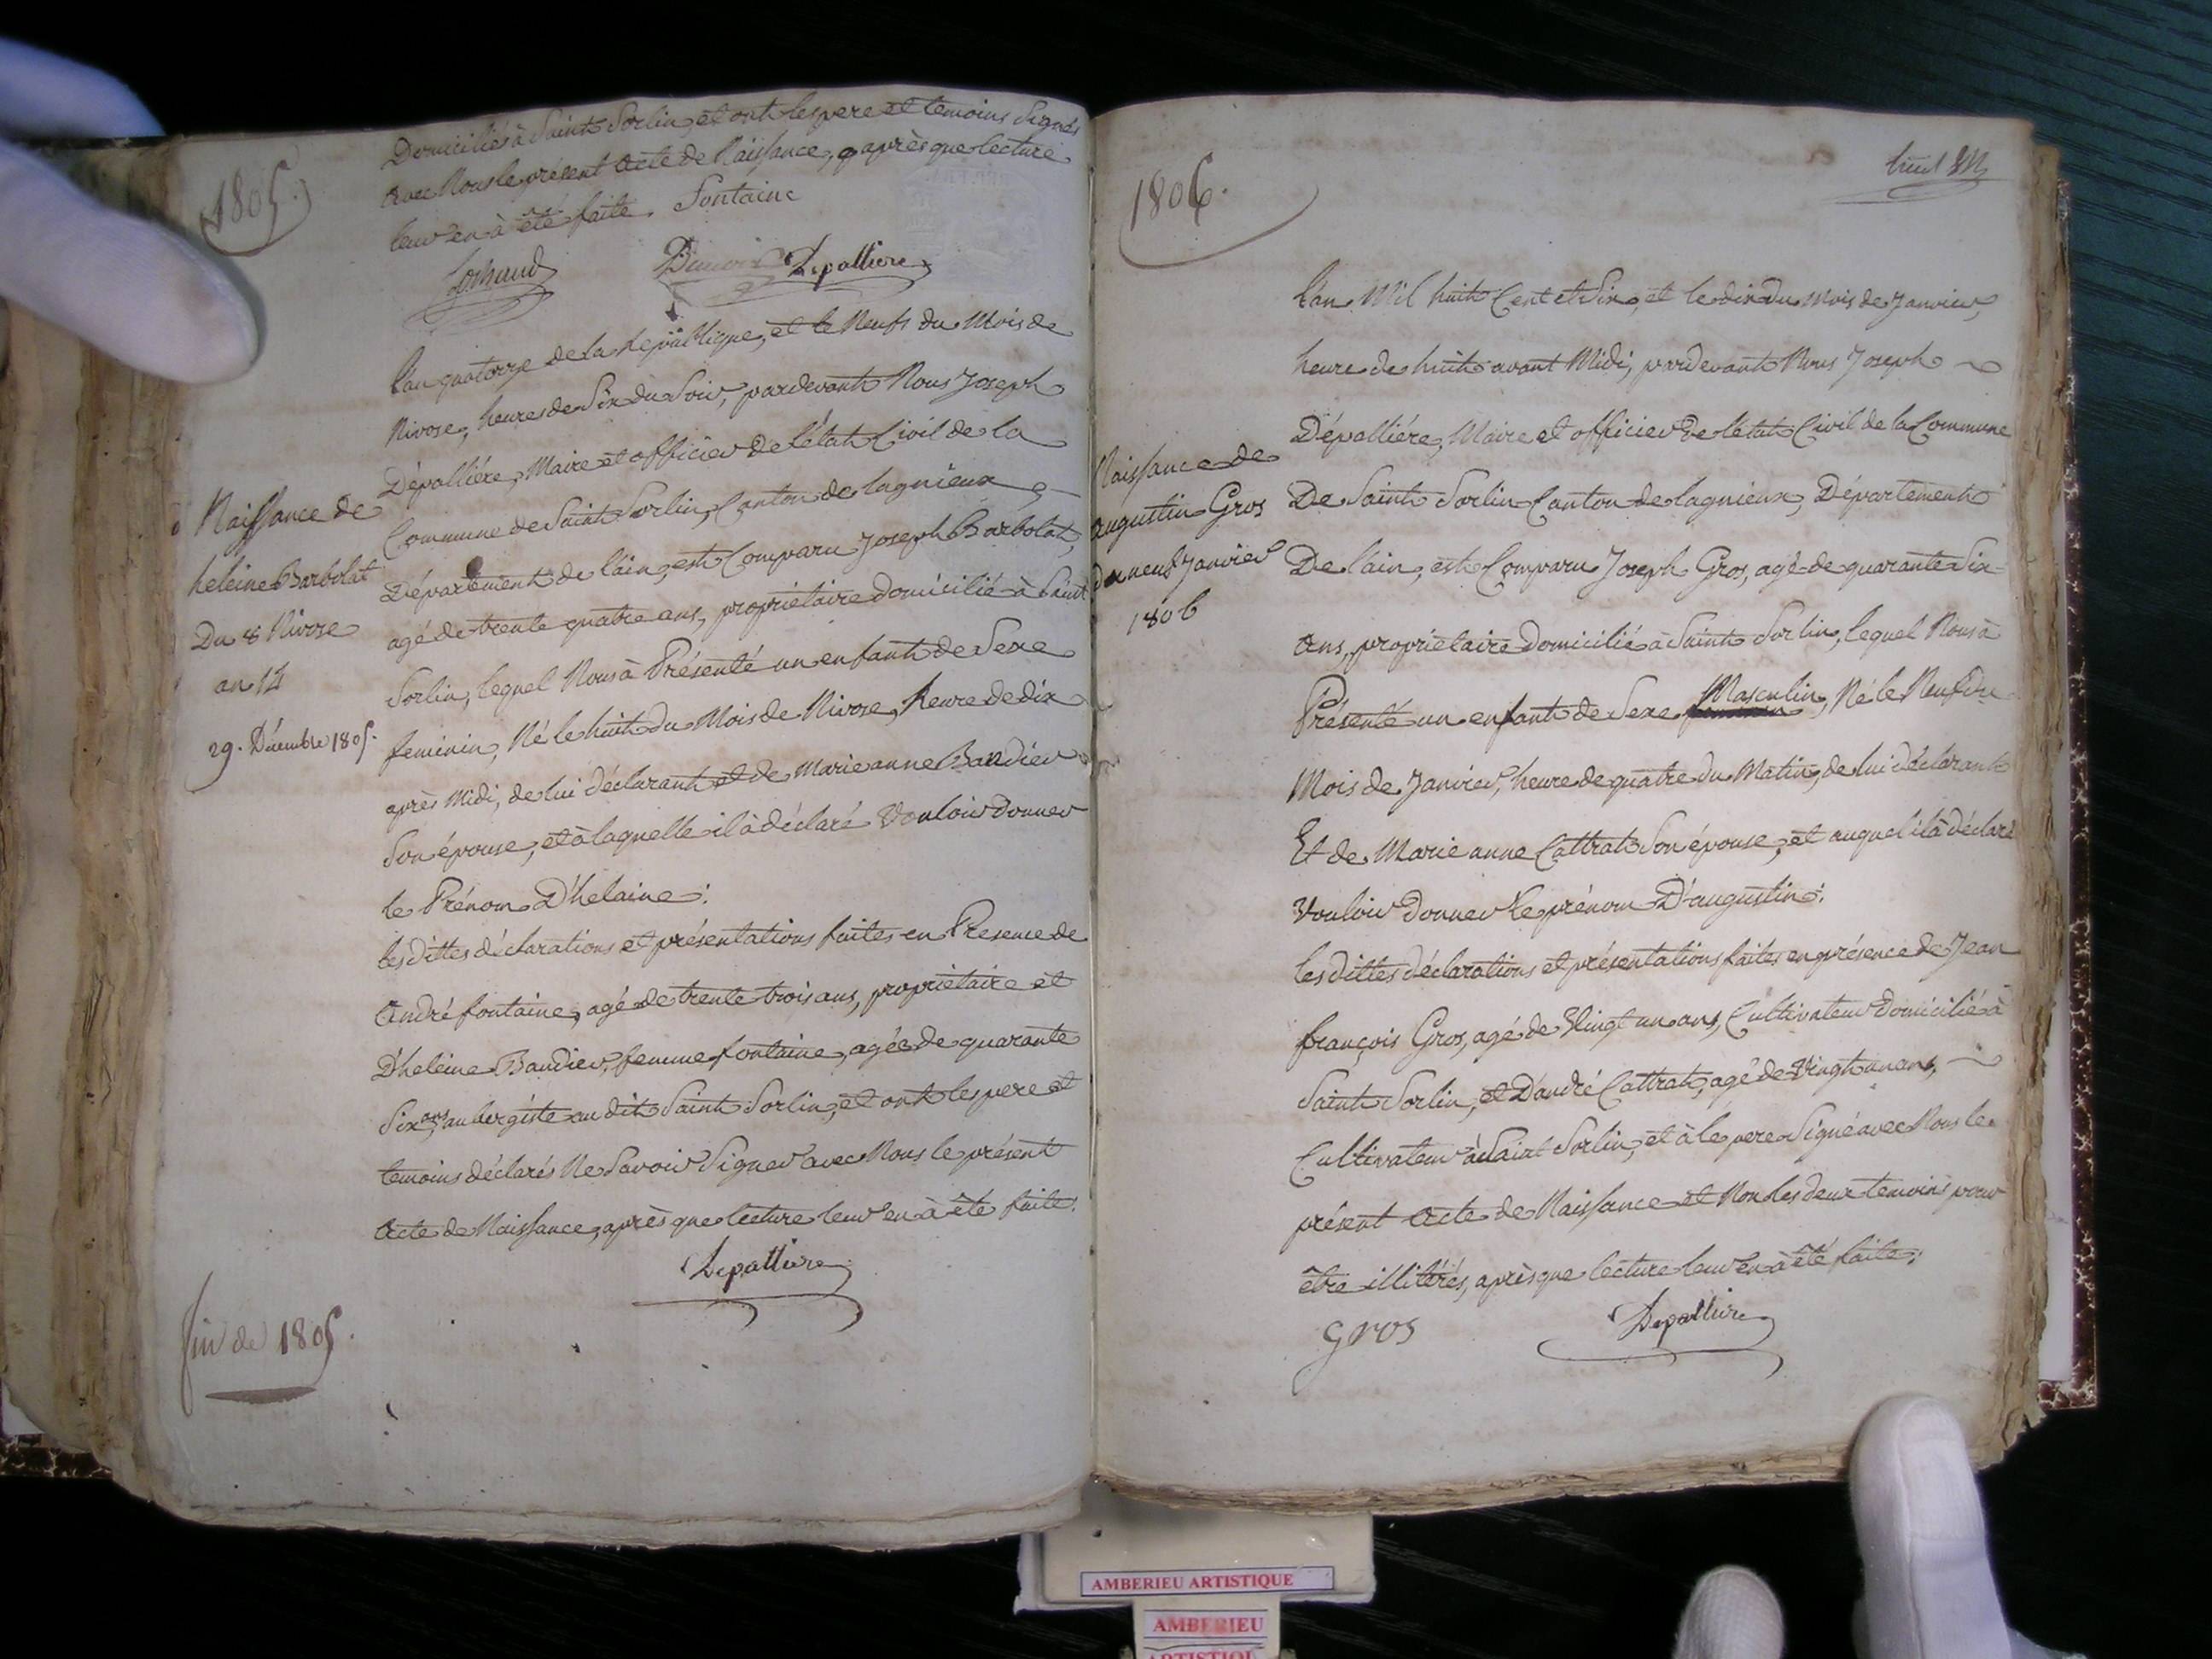 1805.
Domiciliés à Saint Sorlin, et ont les pere et temoins Signés
avec Nous le présent Acte de Naissance, après que lecture
leur en à été faite. Fontaine
Depalliere
L'an quatorze de la République, et le Neufs du Mois de
Nivose, heures de Six du Soir, pardevant Nous Joseph
Dépalliére, Maire et officier de l'état Civil de la
Commune de Saint Sorlin, Canton de lagnieux
Département de l'ain, est Comparu Joseph Barbolat,
agé de trente quatre ans, propriétaire domicilié à Saint
Sorlin, lequel Nous à Présenté un enfant de Sexe
feminin, Né le huit du Mois de Nivose, heure de dix
après Midi, de lui déclarant et de Marie anne Baudier
Son épouse, et à laquelle il à déclaré Vouloir donner
le Prénom D'helaine:
les dittes déclarations et présentations faites en Presence de
André fontaine, agé de trente trois ans, propriétaire et
D'heleine Baudier, femme fontaine, agée de quarante
Six ans, aubergiste au dit Saint Sorlin, et ont les pere et
temoins déclarés Ne Savoir Signer avec Nous le présent
Acte de Naissance, après que lecture leur en à été faite.
Depalliere
Naissance de
heleine Barbolat
Du 8 Nivose
an 14
29. Décembre 1805.
fin de 1805.
1806.
L'an Mil huit Cent et Six, et le dix du Mois de Janvier,
heure de huit avant Midi, pardevant Nous Joseph
Dépalliére, Maire et officier de l'état Civil de la Commune
De Saint Sorlin Canton de lagnieux, Département
De l'ain, est Comparu Joseph Gros, agé de quarante Six
Ans, propriétaire domicilié à Saint Sorlin, lequel Nous à
Présenté un enfant de Sexe Masculin, Né le Neuf du
Mois de Janvier, heure de quatre du Matin, de lui déclarant
Et de Marie anne Cattrat Son épouse, et auquel il à déclaré
Vouloir donner le prénom D'augustin:
les dittes déclarations et présentations faites en présence de Jean
françois Gros, agé de Vingt un ans, Cultivateur domicilié à
Saint Sorlin, et D'andré Cattrat, agé de Vingt un ans,
Cultivateur à Saint Sorlin, et à le pere Signé avec Nous le
présent Acte de Naissance et Non les deux temoins pour
être illitérés, après que lecture leur en à été faite.
Gros Depalliere
Naissance de
Augustin Gros
du neuf Janvier
1806
AMBERIEU ARTISTIQUE
AMBERIEU
ARTISTIQUE